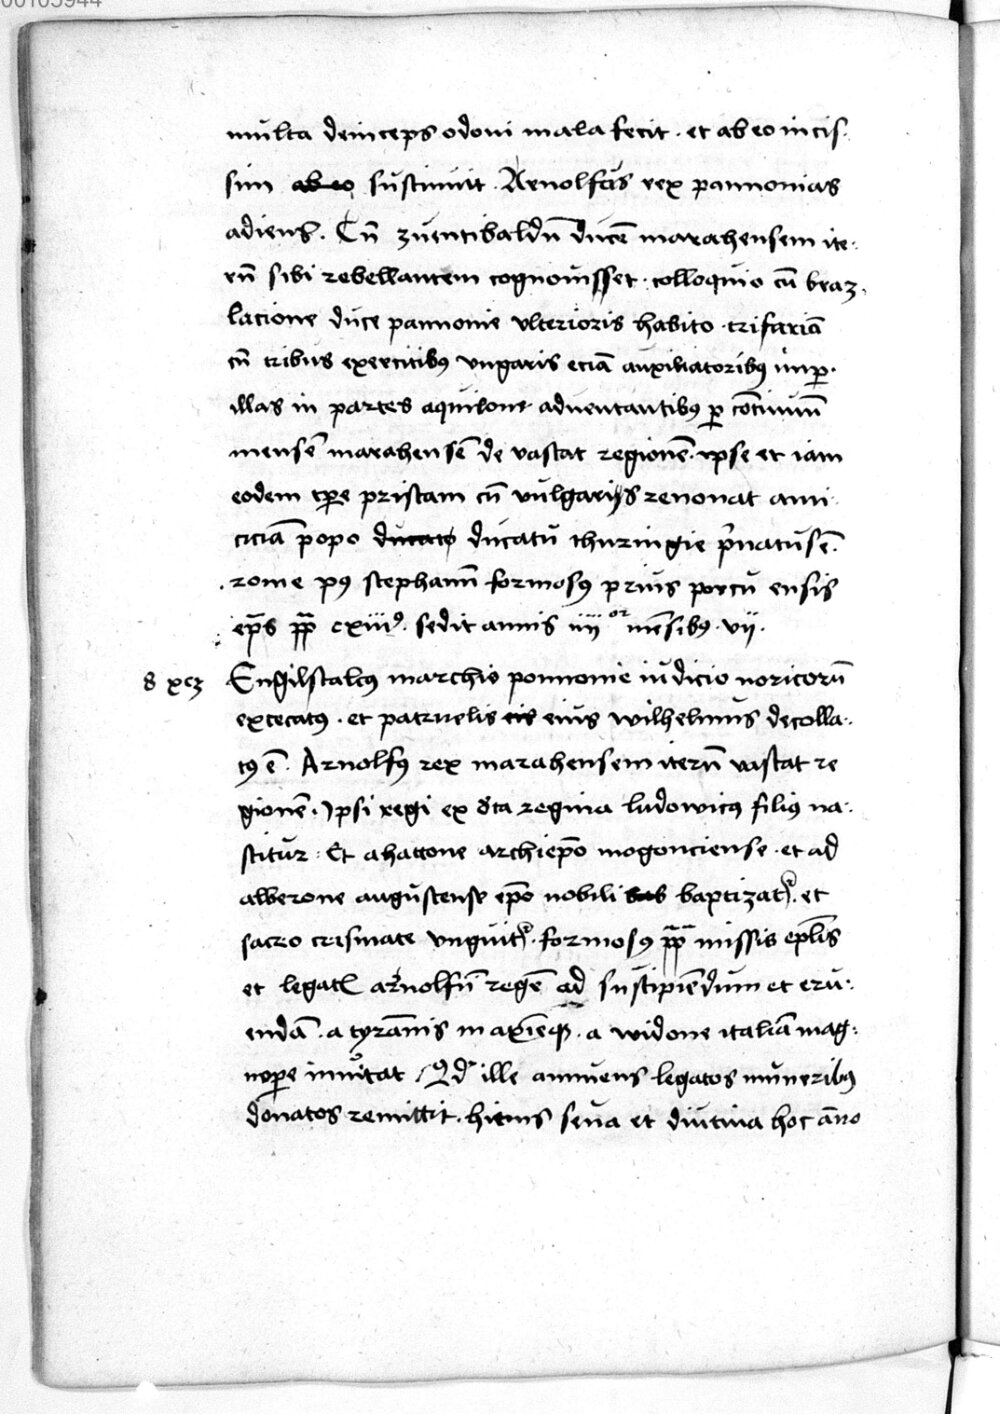 00105944
multa deinceps odoni mala fecit · et ab eo incis
sim ab eo sustinuit · Arnolfus rex pannonias
adiens · Cū zuentibaldū ducē marahensem ite·
rū sibi rebellantem cognouisset · colloquio cū braz·
lacione duce pannonie vlterioris habito · trifariā
cū tribus exercitibꝰ vngaris eciā auxiliatoribꝰ
illas in partes aquilone aduentantibꝰ ꝑ cōtinuū
mensē marahensē de vastat regionē · ipse et iam
eodem tꝑe pristam cū vulgarijs renouat ami
ciciā popo ducato ducatū thuringie p̄uatus ē ·
rome pꝰ stephanū formosꝰ prius portu ensis
ep̄s pp̄ cxiiiꝰ · sedit annis iiii or mēsibꝰ · vij ·
8 xcȝ Engilstalcꝰ marchio ponnonie iudicio noricorū
excecatꝰ · et patruelis eis eius wilhelmus decolla·
tꝰ ē · Arnolfꝰ rex marahensem iterū vastat re
gionē · Ipsi regi ex dc̄ta regina ludowicꝰ filiꝰ na·
scitur · Et a hattone archiep̄o mogonciense · et ad
alberone augustense ep̄o nobili baptizat̉ · et
sacro crismate vnguit̉ · formosꝰ pp̄ missis ep̄lis
et legat̄ arnolfū regē ad suscipiēdum et eru·
endā · a tyrānis a widone italiā mag·
nopꝑe inuitat / Qd̄ ille annuens legatos muneribꝰ
donatos remittit · hiems seua et diutina hoc āno